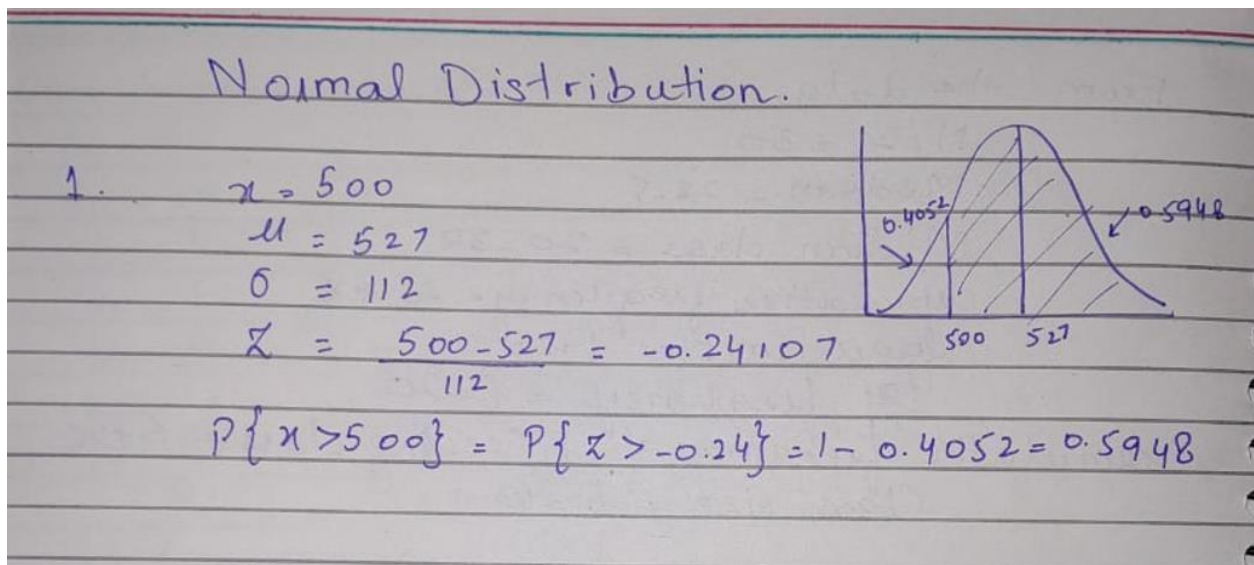 Normal Distribution.
1. x = 500
μ = 527
σ = 112
Z = 500-527 / 112 = -0.24107
P{x>500} = P{Z>-0.24} = 1- 0.4052 = 0.5948
0.4052
0.5948
500 527